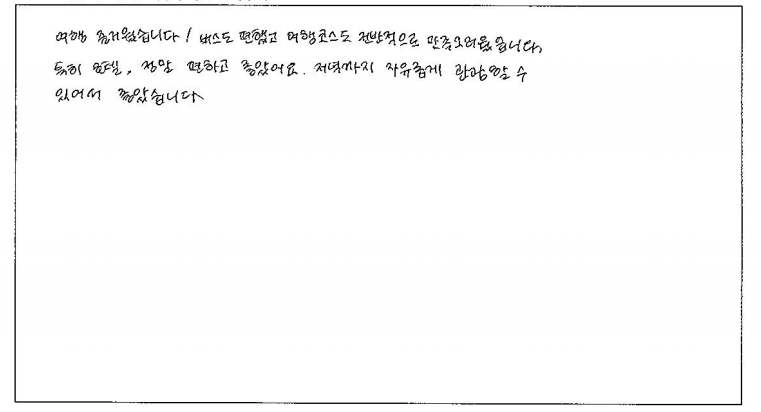 여행 즐거웠습니다! 버스도 편했고 여행코스도 전반적으로 만족스러웠습니다.
특히 호텔, 정말 편하고 좋았어요. 저녁까지 자유롭게 관광할 수
있어서 좋았습니다